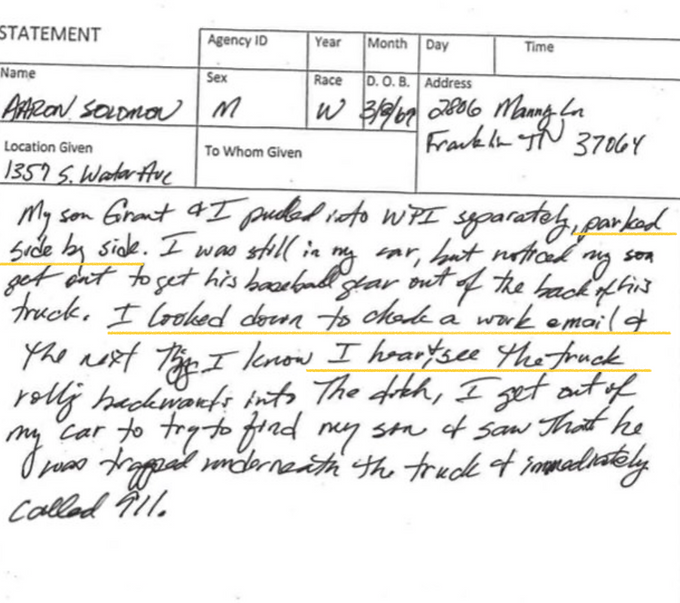 STATEMENT
Agency ID
Year
Month
Day
Time
Name
Sex
Race
D. O. B.
Address
AARON SOLOMON
M
W
3/8/69
2806 Manny Ln
Franklin TN 37064
Location Given
To Whom Given
1357 S. Water Ave
My son Grant & I pulled into WPI separately, parked
side by side. I was still in my car, but noticed my son
get out to get his baseball gear out of the back of his
truck. I looked down to check a work email &
the next thg I know I hear/see the truck
rollg backwards into the ditch, I get out of
my car to try to find my son & saw that he
was trapped underneath the truck & immediately
called 911.